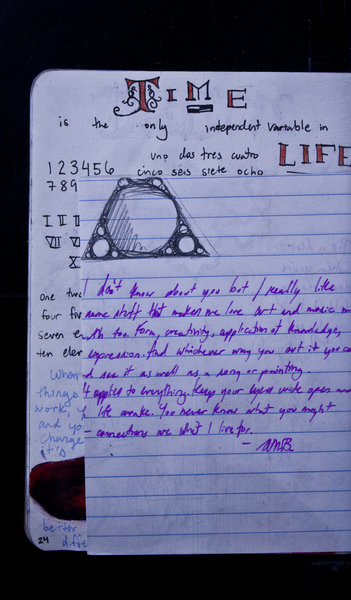 TIME
is the only independent variable in
LIFE
uno dos tres cuatro
cinco seis siete ocho
1 2 3 4 5 6
7 8 9
I II
VI V
X
one two
four f
seven e
ten eleve
When
things
work, y
and yo
change
it's
I don't know about you but I really like
same stuff that makes me love art and music
form, creativity, application of knowledge,
expression. And whichever way you cut it you ca
see it as well as a song or painting.
applies to everything. Keep your eyes wide open and
life awake. You never know what you might
- connections are what I live for.
better
24 diffe